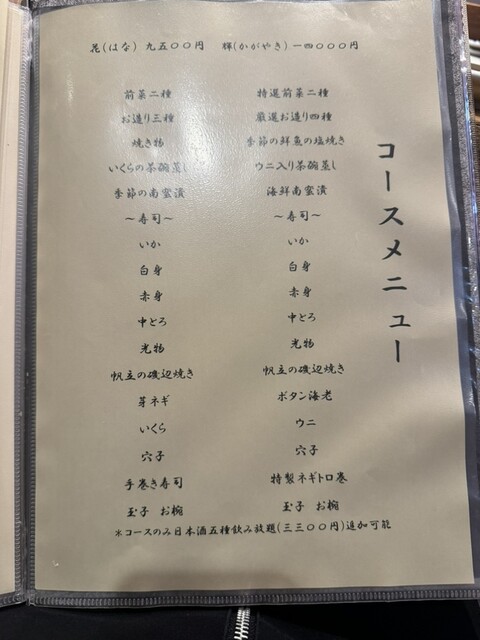 コースメニュー
花(はな) 九五〇〇円　輝(かがやき) 一四〇〇〇円
前菜二種　特選前菜二種
お造り三種　厳選お造り四種
焼き物　季節の鮮魚の塩焼き
いくらの茶碗蒸し　ウニ入り茶碗蒸し
季節の南蛮漬　海鮮南蛮漬
～寿司～　～寿司～
いか　いか
白身　白身
赤身　赤身
中とろ　中とろ
光物　光物
帆立の磯辺焼き　帆立の磯辺焼き
芽ネギ　ボタン海老
いくら　ウニ
穴子　穴子
手巻き寿司　特製ネギトロ巻
玉子 お椀　玉子 お椀
＊コースのみ日本酒五種飲み放題(三三〇〇円)追加可能